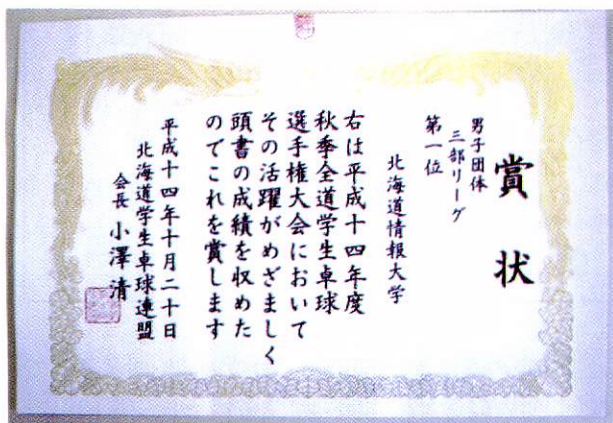 賞状
男子団体
三部リーグ
第一位
北海道情報大学
右は平成十四年度
秋季全道学生卓球
選手権大会において
その活躍がめざましく
頭書の成績を収めた
のでこれを賞します
平成十四年十月二十日
北海道学生卓球連盟
会長 小澤清